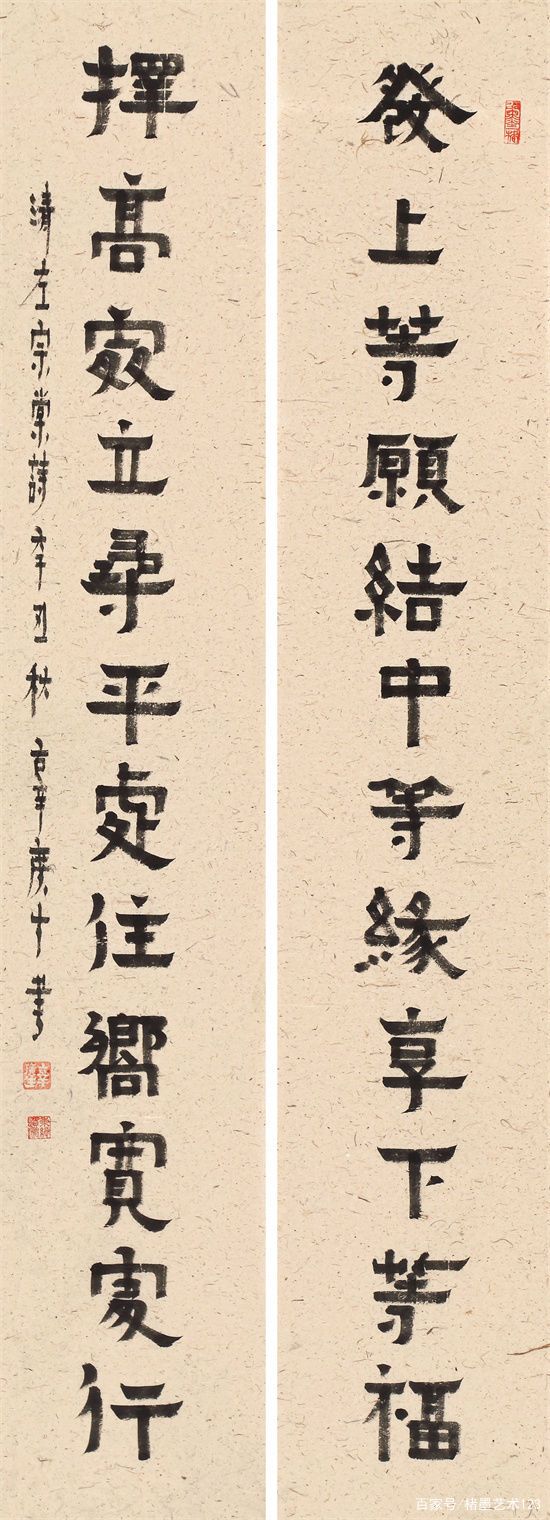 發上等願結中等緣享下等福
擇高處立尋平處住嚮寬處行
清左宗棠詩辛丑秋章庚才書
百家号/楮墨艺术123